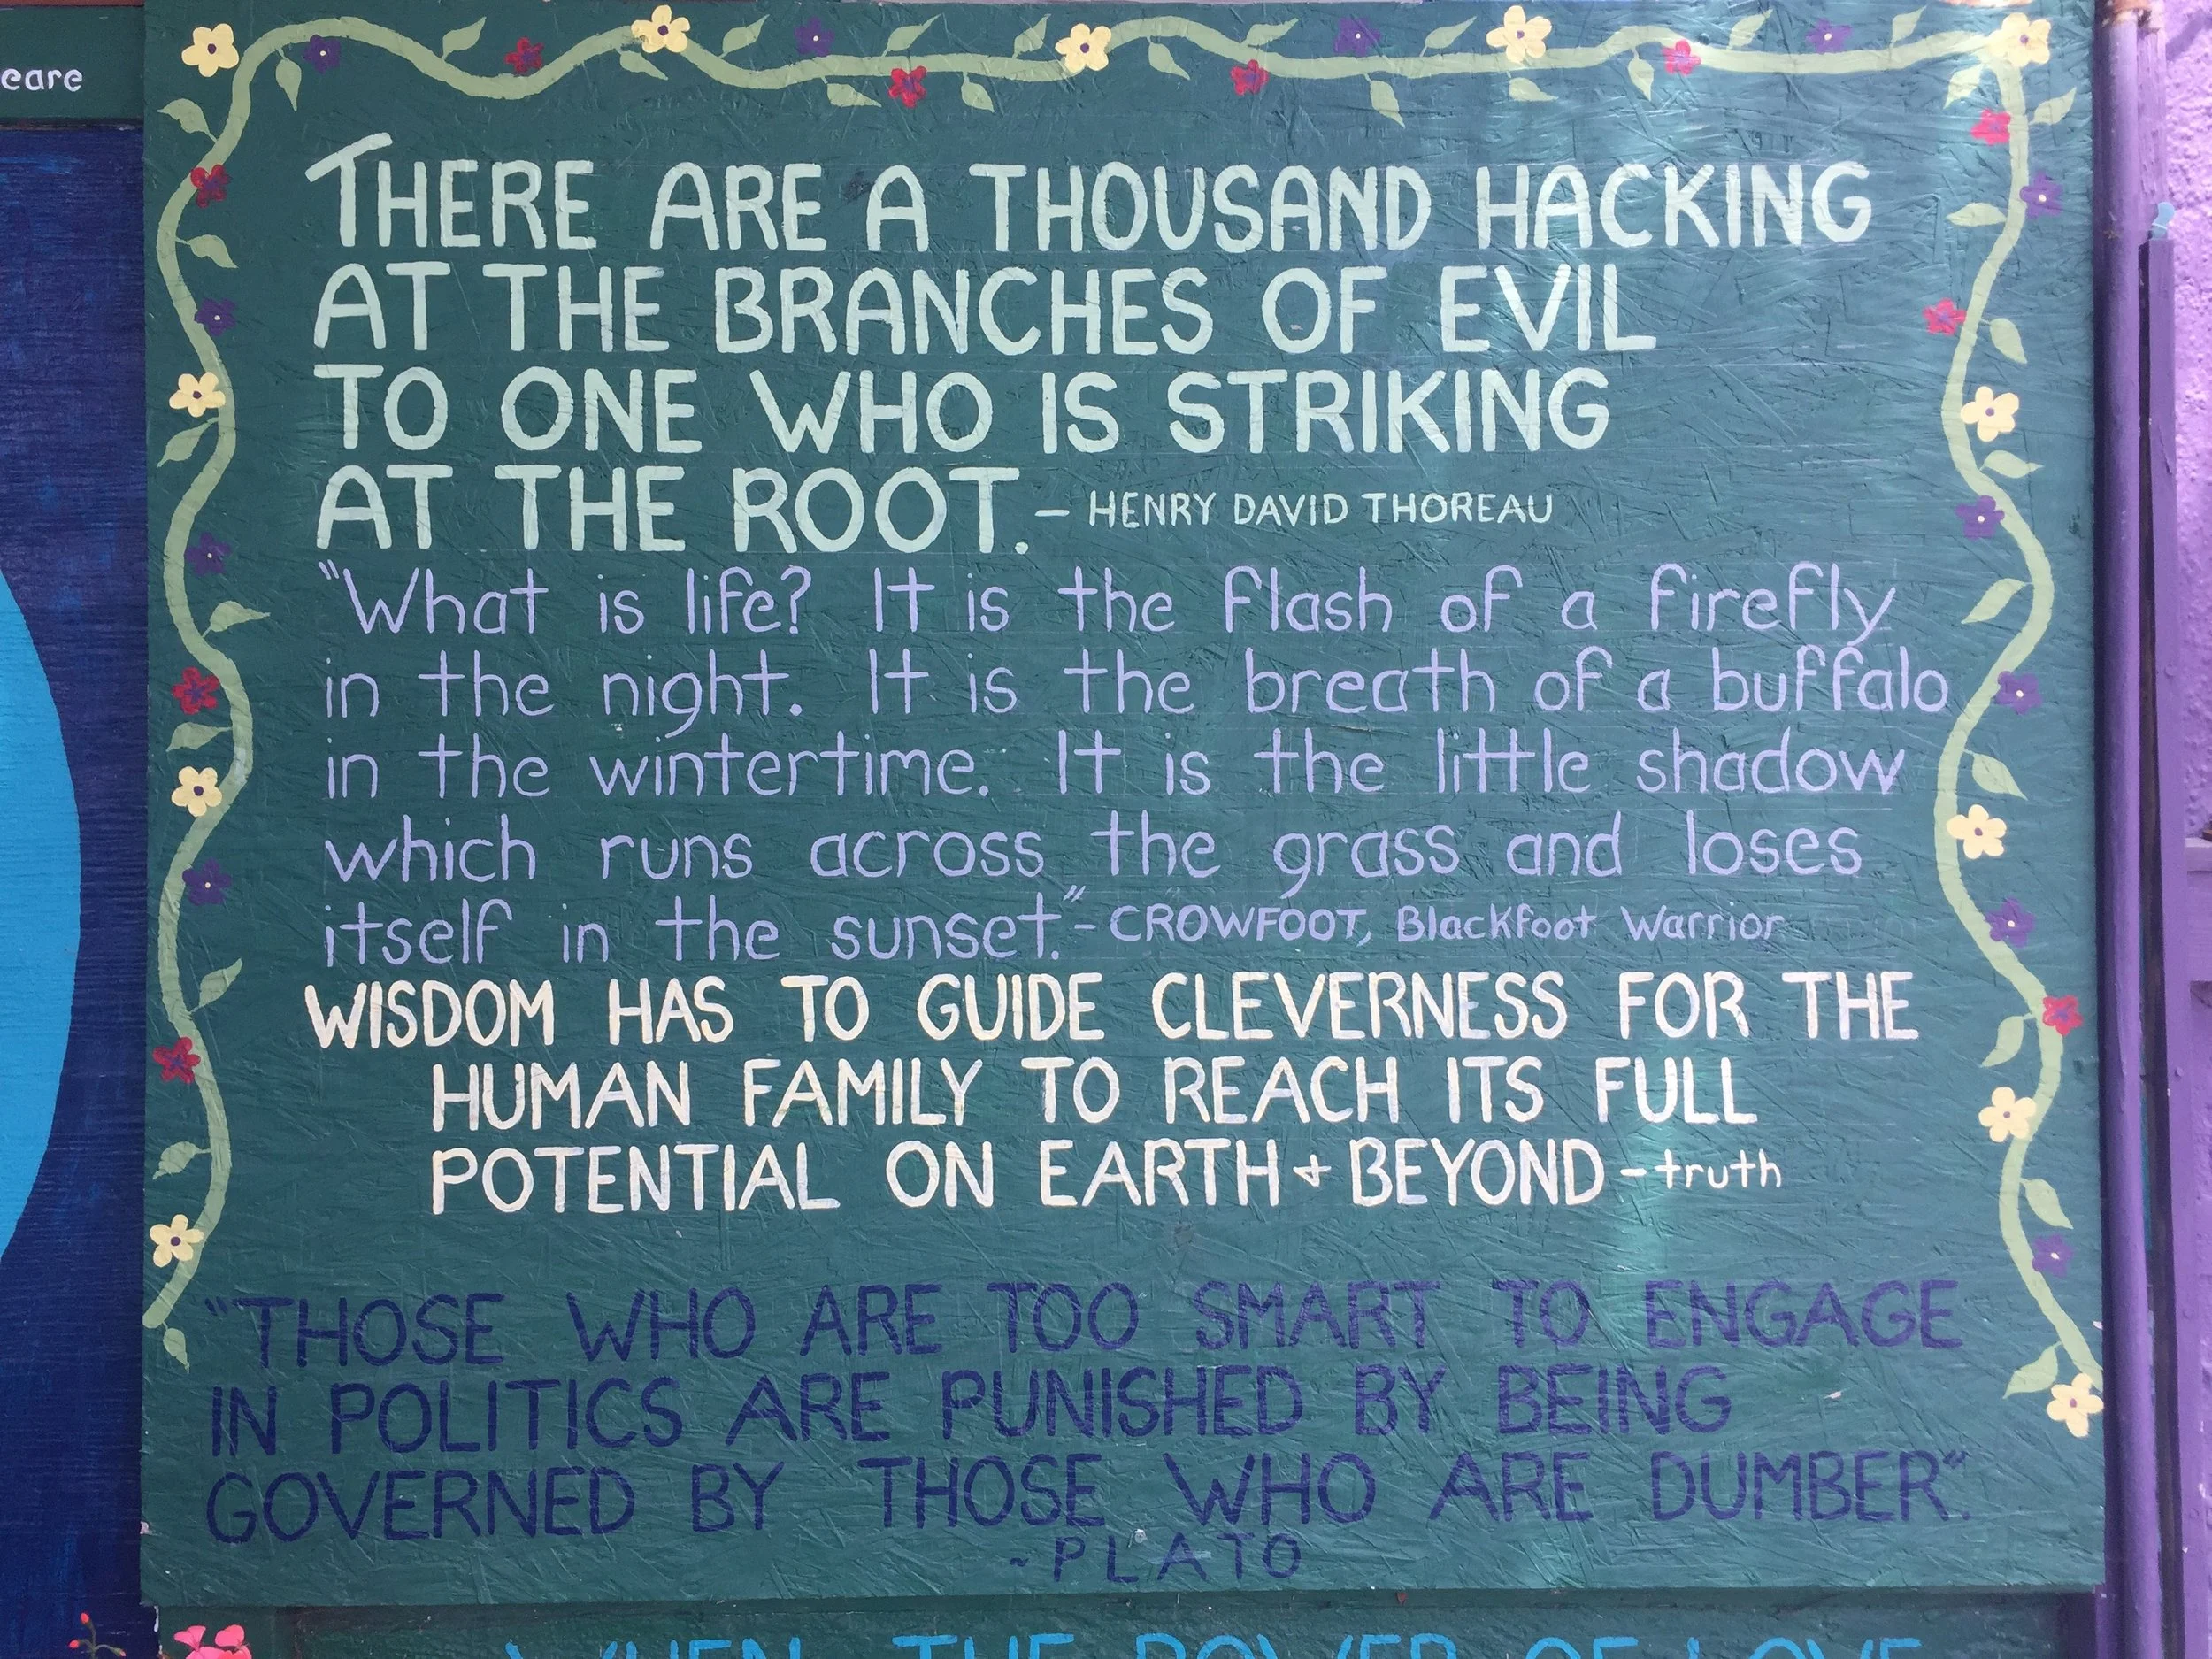 eare
THERE ARE A THOUSAND HACKING
AT THE BRANCHES OF EVIL
TO ONE WHO IS STRIKING
AT THE ROOT. – HENRY DAVID THOREAU
"What is life? It is the flash of a firefly
in the night. It is the breath of a buffalo
in the wintertime. It is the little shadow
which runs across the grass and loses
itself in the sunset." - CROWFOOT, Blackfoot Warrior
WISDOM HAS TO GUIDE CLEVERNESS FOR THE
HUMAN FAMILY TO REACH ITS FULL
POTENTIAL ON EARTH + BEYOND – truth
"THOSE WHO ARE TOO SMART TO ENGAGE
IN POLITICS ARE PUNISHED BY BEING
GOVERNED BY THOSE WHO ARE DUMBER".
~ PLATO
WHEN THE POWER OF LOVE